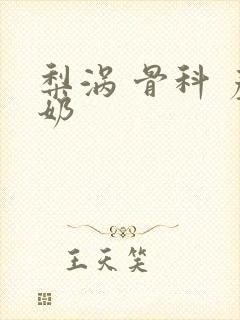 梨涡 骨科
奶
王天笑